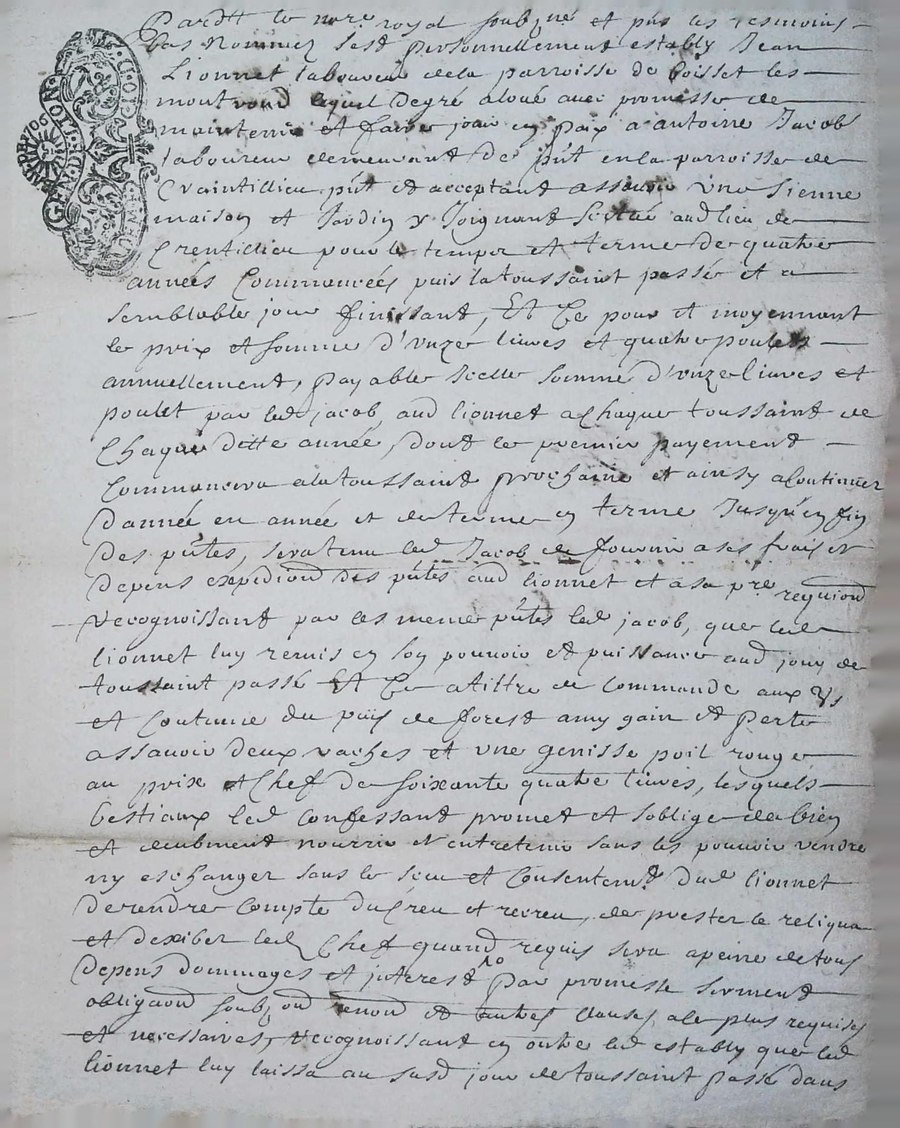 Pardt le nore royal soubzné et pnts les tesmoins
bas nommez sest personnellement estably Jean
Lionnet laboureur dela parroisse de boisset les
montrond lequel degré a loué avec promesse de
maintenir et faire jouir en paix a antoine Jacob
laboureur demeurant de pnt en la parroisse de
Craintillieu pnt et acceptant assavoir une sienne
maison et Jardin y Joignant scitué aud lieu de
Crentillieu pour le temps et terme de quatre
années Commancées puis la toussaint passée et a
semblable jour finissant, Et Ce pour et moyennant
le prix et somme d'unze livres et quatre poulets
annuellement, payable icelle somme d'unze livres et
poulet par led jacob, aud lionnet a Chaque toussaint de
Chaque ditte année, dont le premier payement
Commancera a la toussaint prochaine et ainsy a Continuer
d'année en année et de terme en terme Jusqu'en fin
Des pntes, sera tenu led Jacob de fournir a ses frais et
depens expediond des pntes aud lionnet et a sa pre requiond
recognoissant par ces meme pntes led jacob, que led
lionnet luy remis en son pouvoir et puissance aud jour de
toussaint passé Et Ce a tittre de commande aux us
et Coutume du païs de forest a my gain et perte
assavoir deux vaches et une genisse poil rouge
au prix et Chef de soixante quatre livres, lesquels
bestiaux led Confessant promet et soblige de bien
et deubment nourrir et entretenir sans les pouvoir vendre
ny eschanger sans le sceu et Consentemt dud lionnet
de rendre Compte du Creu et recreu, de prester le reliqua
et dexiber led Chef quand requis sera a peine de tous
depens dommages et interest Par promesse serment
obligaond soubzond renond et autres clauses ale plus requises
et necessaires, recognoissant en outre led estably que led
lionnet luy laissa au susd jour de toussaint passé dans
GEN. DE LION